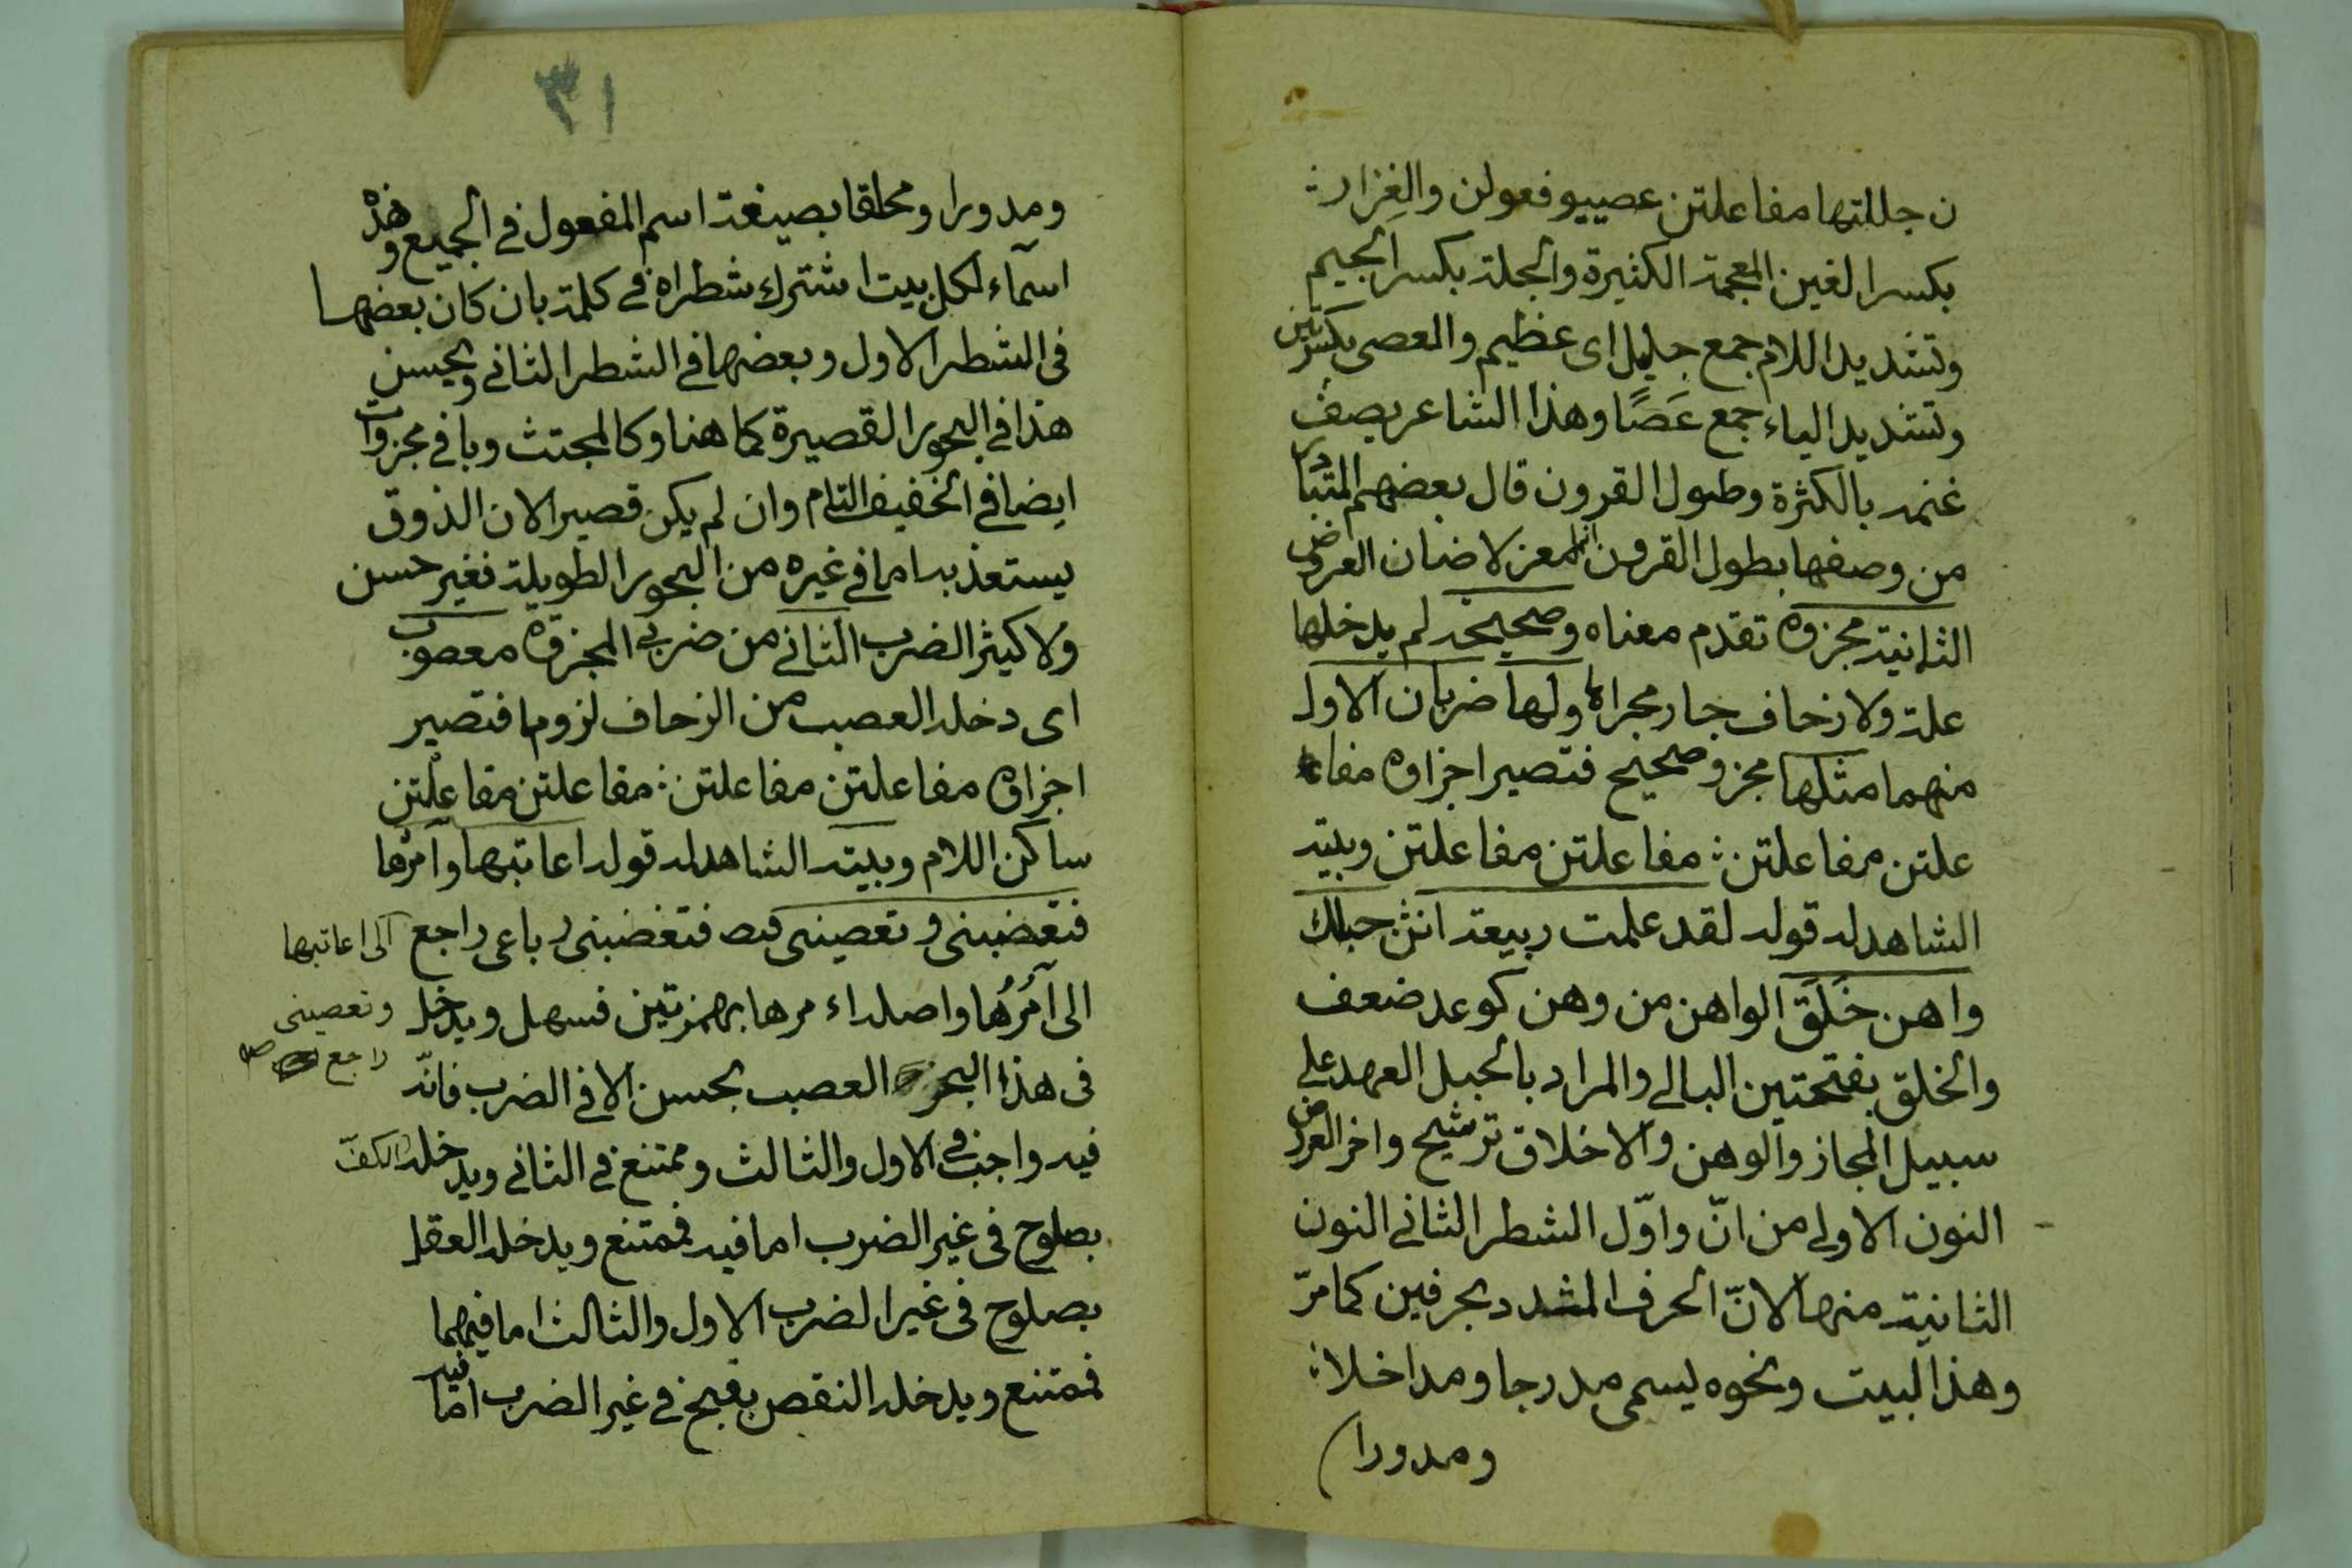 ن جللتها مفاعلتن عصييو فعولن والغِزار ؞
بكسر الغين المعجمة الكثيرة والجلة بكسر الجيم
وتشديد اللام جمع جليل اى عظيم والعصى بكسرتين
وتشديد الياء جمع عَصًا وهذا الشاعر يصف
غنمه بالكثرة وطول القرون قال بعضهم المتبادر
من وصفها بطول القرون انها معز لا ضان العروض
الثانية مجزوة تقدم معناه وصحيحة لم يدخلها
علة ولا زحاف جار مجراها ولها ضربان الاول
منهما مثلها مجزو صحيح فتصير اجزاوه مفا
علتن مفاعلتن ؞ مفاعلتن مفاعلتن وبيته
الشاهد له قوله لقد علمت ربيعة انن حبلك
واهن خَلَق الواهن من وهن كوعد ضعف
والخلق بفتحتين البالى والمراد بالحبل العهد على
سبيل المجاز والوهن والاخلاق ترشيح واخر العروض
النون الاولى من انّ واوّل الشطر الثانى النون
الثانية منها لانّ الحرف المشدد بحرفين كما مرّ
وهذا البيت ونحوه يسمى مدرجا ومداخلا ؞
ومدورا
٣١
ومدورا ومحلقا بصيغة اسم المفعول فى الجميع وهذه
اسمآء لكل بيت اشترك شطراه فى كلمة بان كان بعضها
فى الشطر الاول وبعضها فى الشطر الثانى ويحسن
هذا فى البحور القصيرة كما هنا وكالمجتث وباقى مجزوات
ايضا فى الخفيف التام وان لم يكن قصيرا لان الذوق
يستعذبه اما فى غيره من البحور الطويلة فغير حسن
ولا كيثر الضرب الثانى من ضربى المجزوة معصوب
اى دخله العصب من الزحاف لزوما فتصير
اجزاوه مفاعلتن مفاعلتن ؞ مفاعلتن مفاعلْتن
ساكن اللام وبيته الشاهد له قوله اعاتبها وآمرُها
فتغضبنى وتعصينى فتغضبنى رباعى راجع الى اعاتبها
الى آمُرُها واصله اءمرها بهمزتين فسهل ويدخل
وتعصينى
راجع صح
فى هذا البحر العصب بحسن الا فى الضرب فانّه
فيه واجب فى الاول والثالث وممتنع فى الثانى ويدخله الكفّ
بصلوح فى غير الضرب اما فيه فممتنع ويدخله العقل
بصلوح فى غير الضرب الاول والثالث اما فيهما
فممتنع ويدخله النقص بقبح فى غير الضرب اما فيه